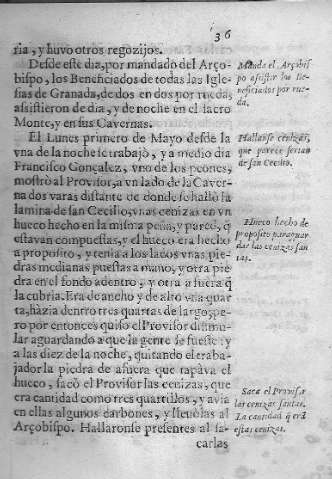 36
ria, y huvo otros regozijos.
Desde este dia, por mandado del Arço-
bispo, los Beneficiados de todas las Igle-
sias de Granada, de dos en dos por rueda,
assistieron de dia, y de noche en el sacro
Monte, y en sus Cavernas.
El Lunes primero de Mayo desde la
vna de la noche se trabajò, y a medio dia
Francisco Gonçalez, vno de los peones,
mostrò al Provisor, a vn lado de la Caver-
na dos varas distante de donde se hallò la
lamina de san Cecilio, vnas cenizas en vn
hueco hecho en la misma peña, y parece, q̃
estavan compuestas, y el hueco era hecho
a proposito, y tenia a los lados vnas pie-
dras medianas puestas a mano, y otra pie
dra en el fondo adentro, y otra a fuera q̃
la cubria. Era de ancho y de alto vna quar
ta, hàzia dentro tres quartas de largo, pe-
ro por entonces quiso el Provisor disimu-
lar aguardando a que la gente se fuesse: y
a las diez de la noche, quitando el traba-
jador la piedra de afuera que tapàva el
hueco, sacò el Provisor las cenizas, que
era cantidad como tres quartillos, y avia
en ellas algunos carbones, y llevolas al
Arçobispo. Hallaronse presentes al sa-
carlas
Manda el Arçobis
po assistir los Be-
neficiados por rue
da.
Hallanse cenizas,
que parece serian
de san Cecilio.
Hueco hecho de
proposito para guar
dar las cenizas san
tas.
Saca el Provisor
las cenizas santas.
La cantidad q̃ era
estas cenizas.